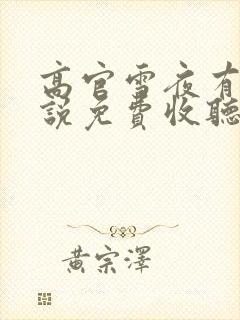 高官雪夜有
說免費收聽
黃宗澤